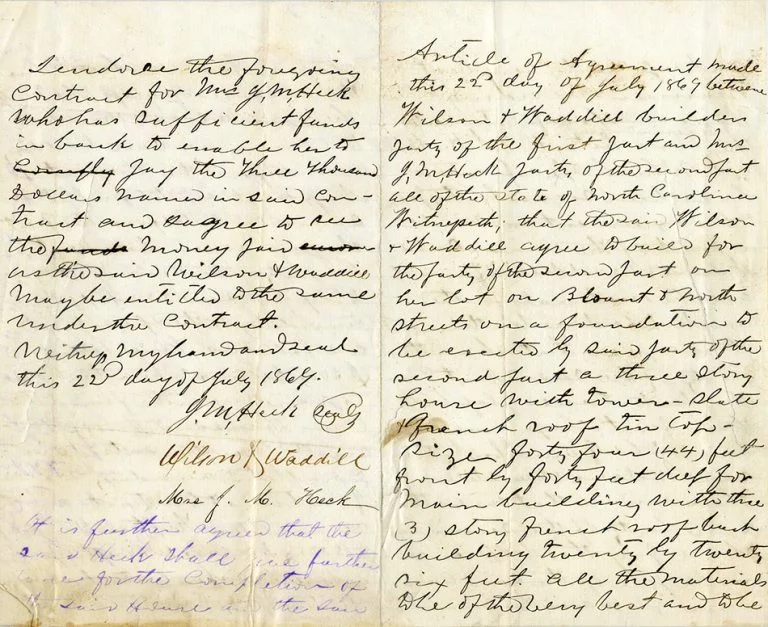 I endorse the foregoing
Contract for Mrs J, M, Heck
Who has sufficient funds
in bank to enable her to
Comply pay the Three Thousand
Dollars Named in said Con-
tract and I agree to see
the funds Money paid
as the said Wilson & Waddill
may be entitled to the same
under the Contract.
Witness my hand and seal
this 22d day of July 1869.
J. M, Heck (Seal)
Wilson & Waddill
Mrs J. M. Heck
It is further agreed that the
said Heck shall further
for the Completion of
said House and the said
Article of Agreement made
this 22d day of July 1869 between
Wilson & Waddill builders
party of the first part and Mrs
J, M, Heck party of the second part
all of the State of North Carolina
Witnesseth; that the said Wilson
& Waddill agree to build for
the party of the second part on
her lot on Blount & North
streets on a foundation to
be erected by said party of the
second part a three story
house with tower - slate
& french roof tin top -
Size forty four (44) feet
front by forty feet deep for
main building with three
(3) story french roof back
building twenty by twenty
six feet all the materials
to be of the very best and to be